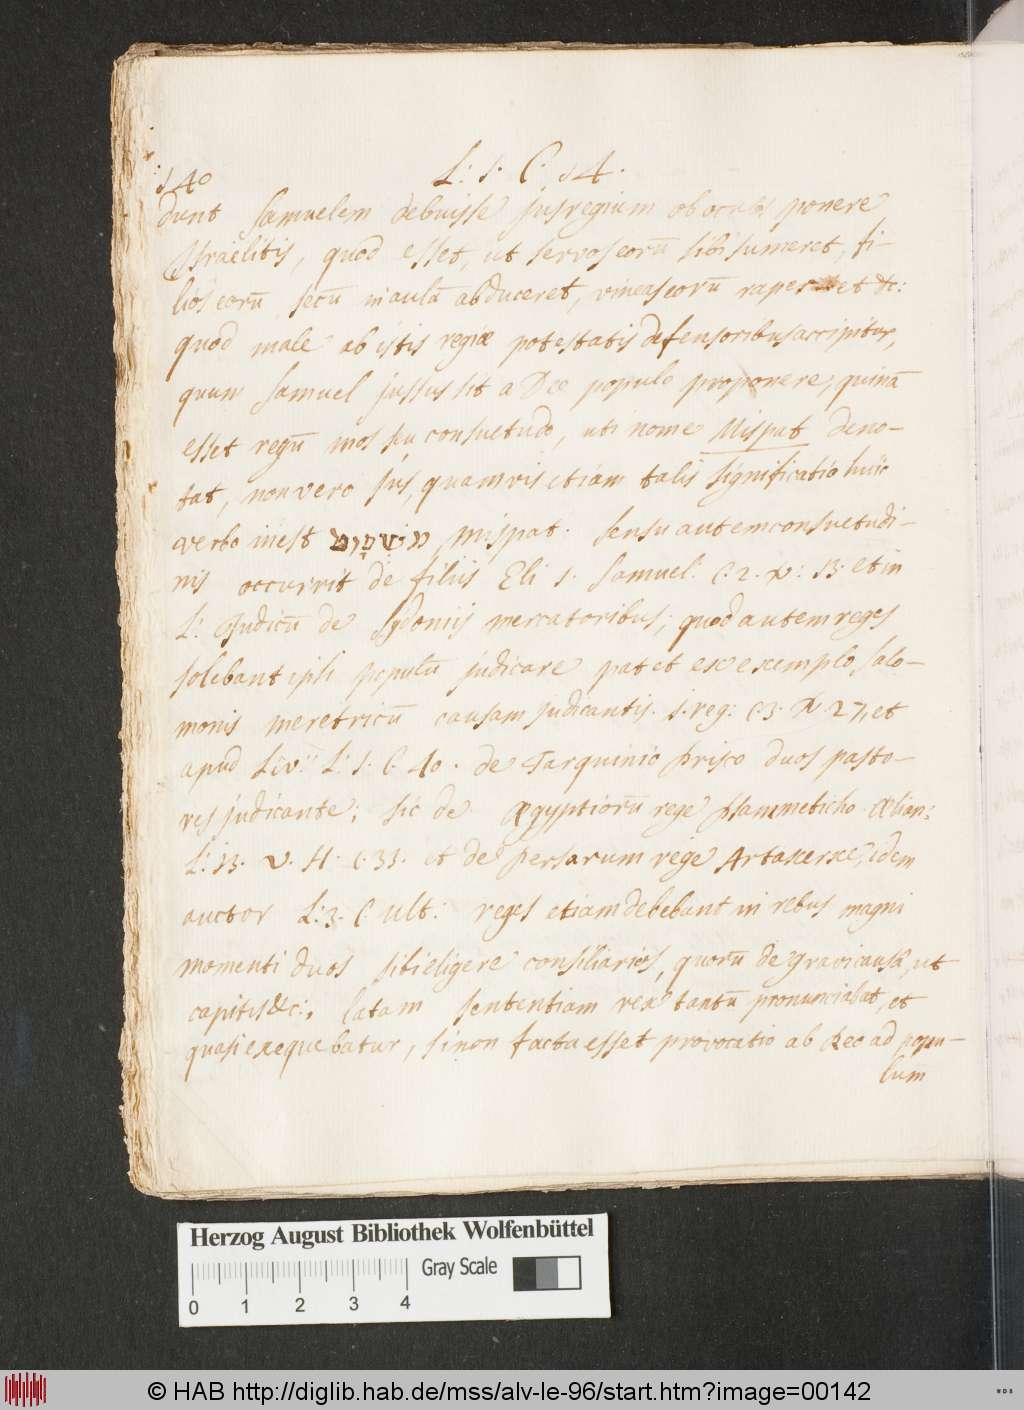 140
L: 1. C. 14.
dunt Samuelem debuisse jusregium ob oculos ponere
Israëlitis, quod esset, ut servos eorū sibi sumeret, fi-
lios eorū secū in aulā abduceret, vineas eorū raperet &c:
quod male ab istis regiæ potestatis defensoribus accipitur,
quum Samuel jussus sit a Deo populo proponere, quinā
esset regū mos seu consuetudo, uti nome Mispat deno-
tat, non vero jus, quamvis etiam talis significatio huic
verbo inest משפט mispat. sensu autem consuetudi-
nis occurrit de filiis Eli 1. Samuel. C. 2. v: 13. et in
L: Judicū de Sydoniis mercatoribus; quod autem reges
solebant ipsi populū judicare patet ex exemplo Salo-
monis meretricū causam judicantis. 1. reg: C. 3. v. 27, et
apud Liv: L: 1. C. 40. de Tarquinio Prisco duos pasto-
res judicante; sic de Ægyptiorū rege Psammeticho Ælian:
L: 13. V. H. C. 33. et de Persarum rege Artaxerxe, idem
auctor L: 3. C. ult: reges etiam debebant in rebus magni
momenti duos sibi eligere consiliarios, quorū de gravi causa, ut
capitis &c:, latam sententiam rex tantū pronunciabat, et
quasi exequebatur, si non facta esset provocatio ab Reo ad popu-
lum
Herzog August Bibliothek Wolfenbüttel
Gray Scale
0 1 2 3 4
© HAB http://diglib.hab.de/mss/alv-le-96/start.htm?image=00142